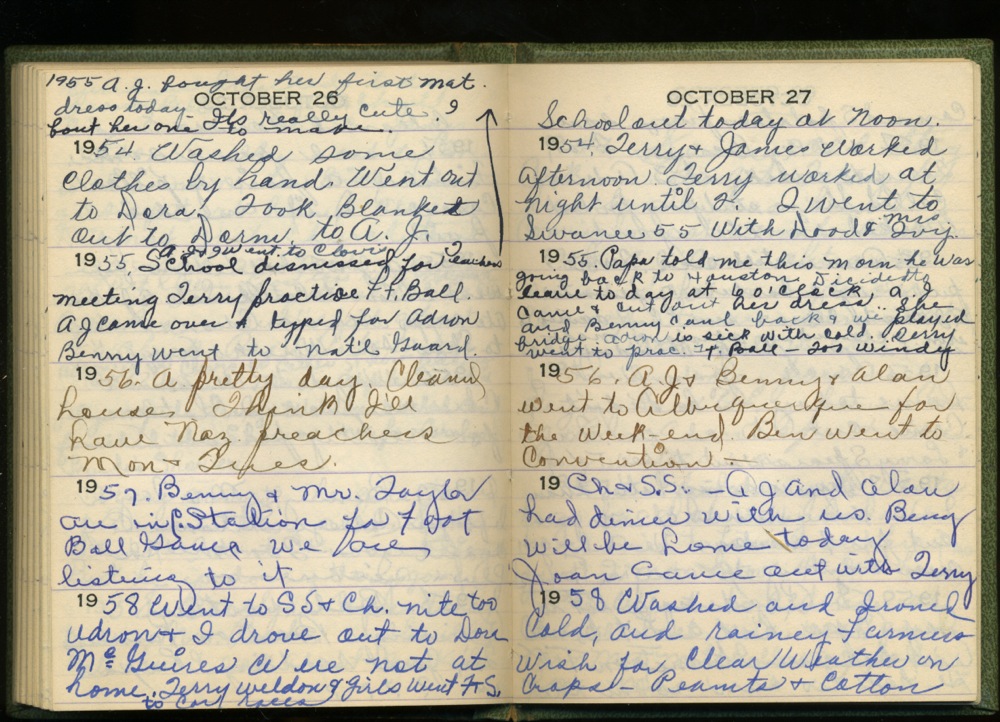 1955 A.J. bought her first mat.
dress today
OCTOBER 26
Its really cute. I
bout her one to make.
1954. Washed some
clothes by hand. Went out
to Dora. Took Blanket
out to Dorm. to A.J.
A.J. & I went to Clovis
1955. School dismissed for Teachers
meeting Terry practice Ft. Ball.
A J came over & typed for Adron
Benny went to Nat'l Guard.
1956. A pretty day. Cleaned
house. Think I'll
have Naz preachers
Mon & Tues.
1957. Benny & Mr. Taylor
are in P. Station for Foot
Ball Game we are
listening to it
1958 Went to SS & Ch. nite too
Adron & I drove out to Don
McGuires Were not at
home. Terry Weldon & Girls Went Ft S.
to Car races
OCTOBER 27
School out today at Noon.
1954. Terry & James worked
afternoon. Terry worked at
night until 2. I went to
Swanee 55 With Dood & Mrs
Ivy.
1955. Papa told me this morn he was
going back to Houston. Decided to
leave to day at 6 o'clock. A.J.
came & cut out her dress. She
and Benny came back & we played
bridge. Adron is sick with cold. Terry
went to prac. Ft. Ball - too windy
1956. A J & Benny & Alan
went to Albuquerque for
the week-end. Ben went to
Convention -
19 Ch & S.S. - A J and Alan
had dinner with us. Benny
will be home today
Joan came out with Terry
1958 Washed and Ironed
Cold, and rainey Farmers
wish for Clear Weather on
Crops - Peanuts & Cotton